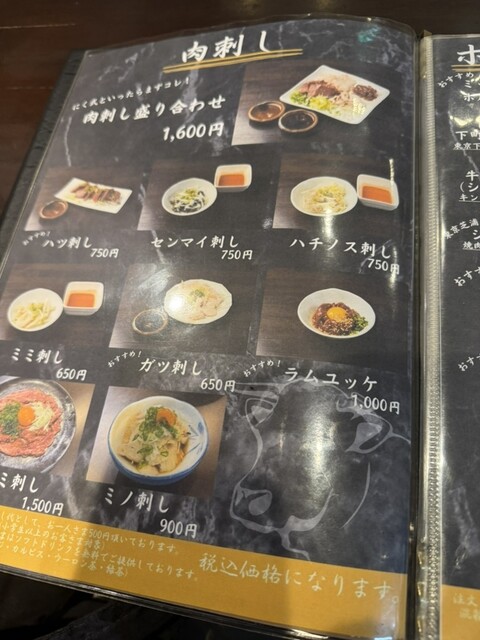 肉刺し
にく式といったらまずコレ!
肉刺し盛り合わせ
1,600円
おすすめ!
ハツ刺し
750円
センマイ刺し
750円
ハチノス刺し
750円
ミミ刺し
650円
おすすめ!
ガツ刺し
650円
おすすめ!
ラムユッケ
1,000円
ミ刺し
1,500円
ミノ刺し
900円
代として、お一人さま500円頂いております。
はソフトドリンクを無料でご提供しております。
カルピス・ウーロン茶・緑茶)
税込価格になります。
ホ
おすすめ!
下町
東京下
牛
(シ
キン
東京芝浦
シ
焼肉
おすすめ!
おすすめ!
注文